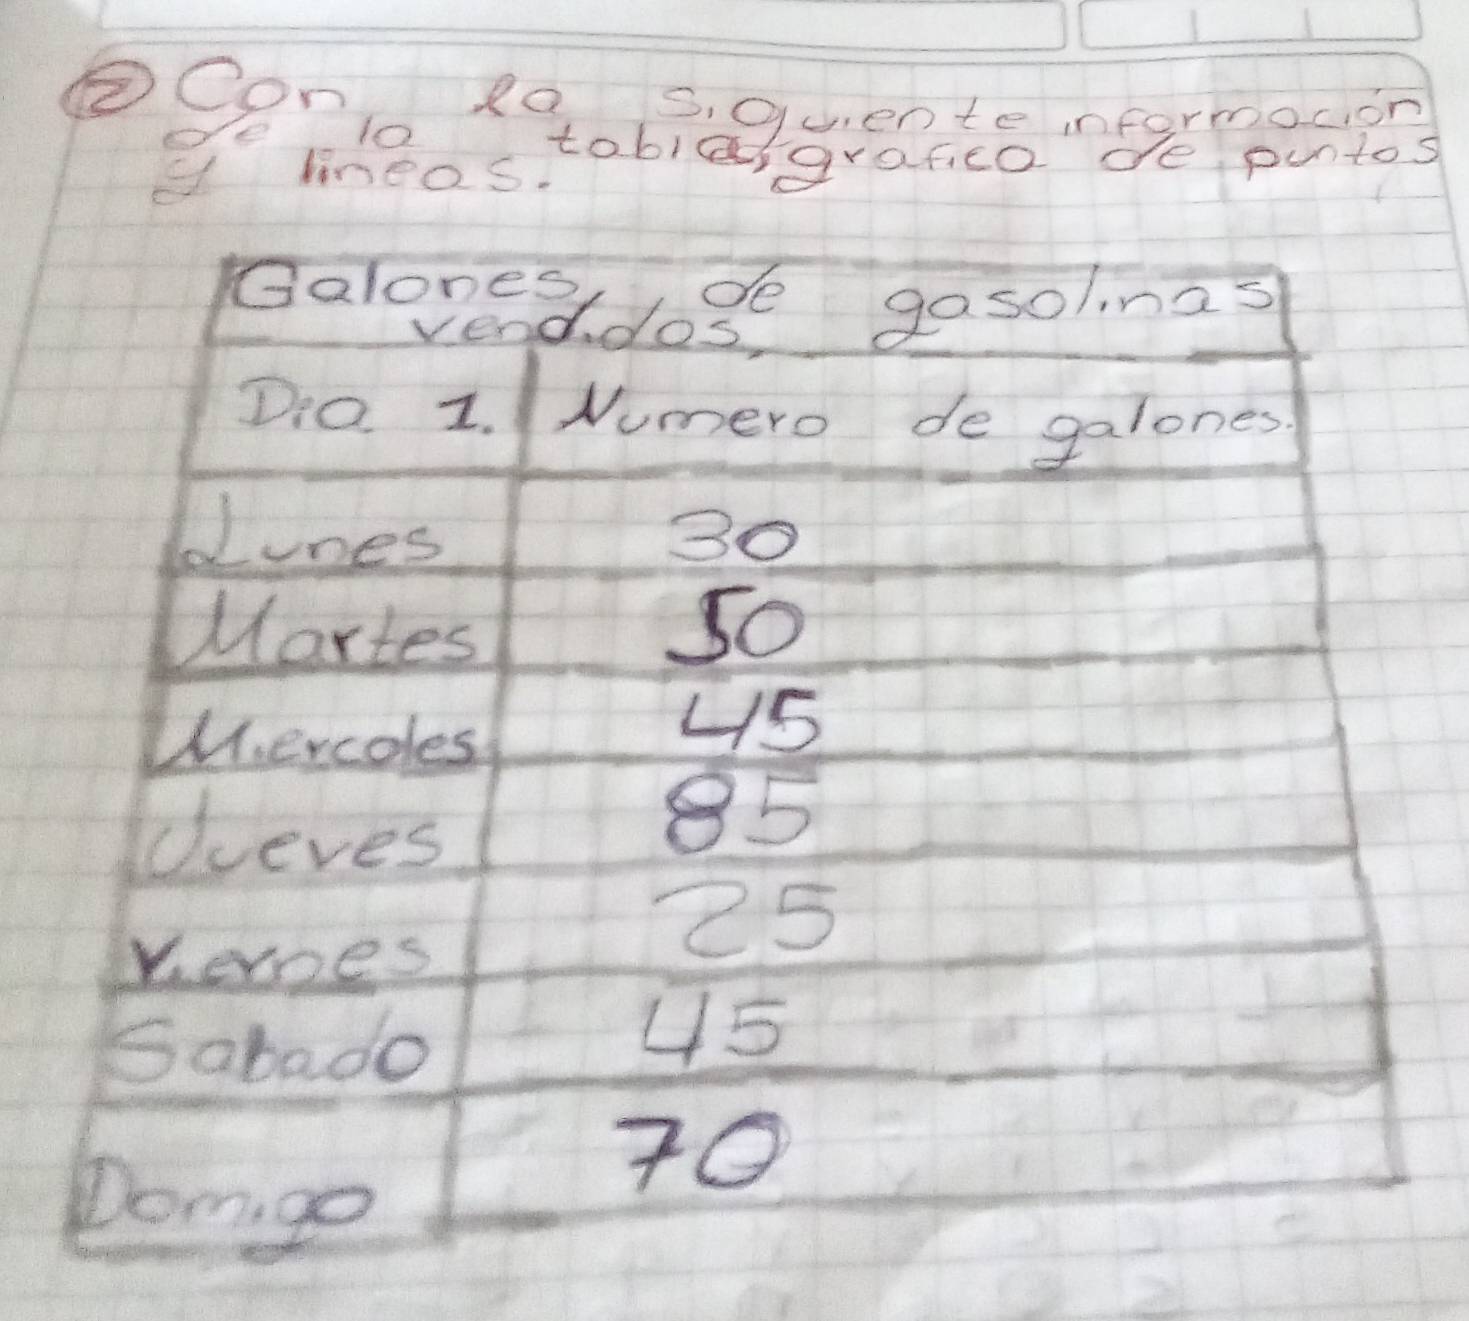 ② Con la siguiente información
de la tabla, grafica de puntos
y lineas.
Galones, de gasolinas
vendidos,
Dia 1. Numero de galones.
Lunes 30
Martes 50
Miercoles 45
Jueves 85
Viernes 25
Sabado 45
Domigo 70